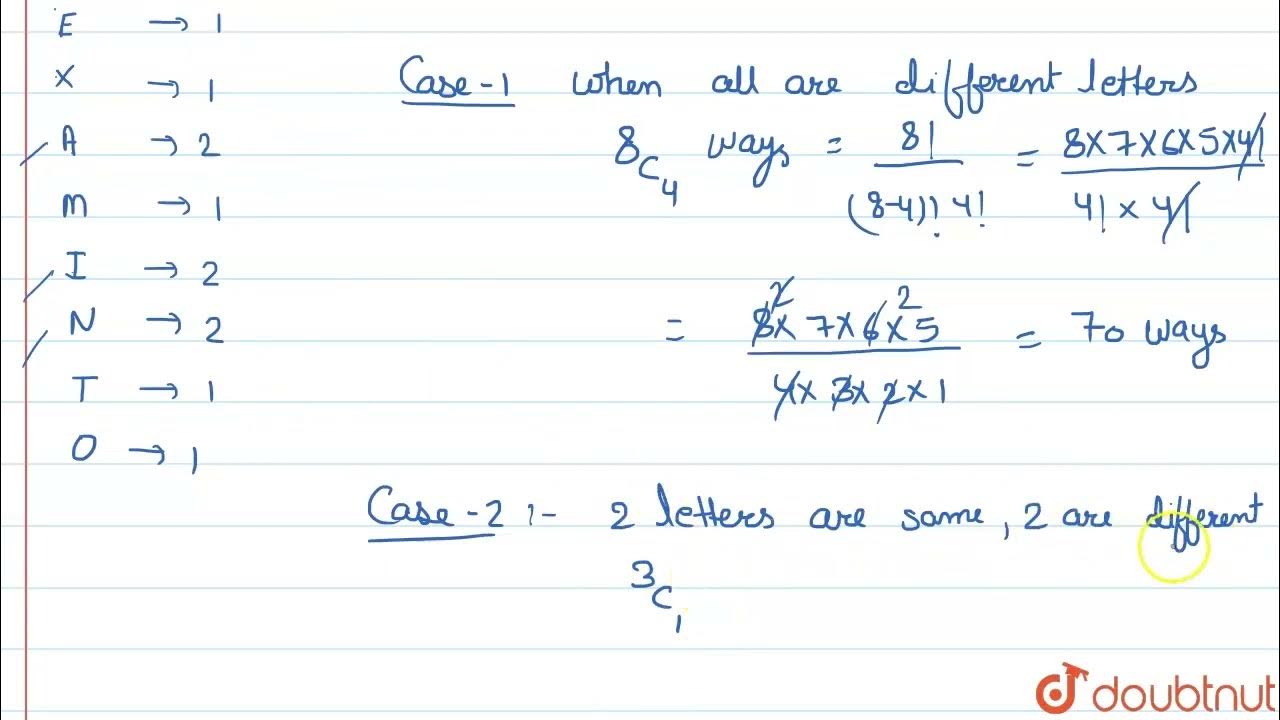 E → 1
X → 1
A → 2
M → 1
I → 2
N → 2
T → 1
O → 1
Case-1 When all are different letters
8C4 ways = 8! / (8-4)! 4! = 8x7x6x5x4! / 4! x 4!
= 8x 7x 6x 5 / 4x 3x 2x 1 = 70 ways
2 2
Case-2 :- 2 letters are same, 2 are different
3C1
doubtnut